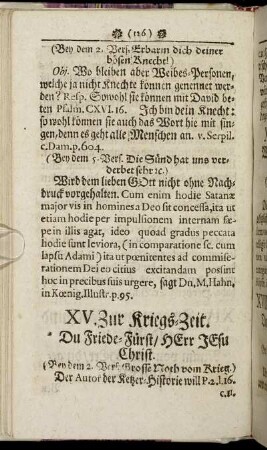 (126)
(Bey dem 2. Vers. Erbarm dich deiner
bösen Knecht!)
Obj. Wo bleiben aber Weibes-Personen,
welche ja nicht Knechte können genennet wer-
den? Resp. Sowohl sie können mit David be-
ten Psalm. CXVI. 16. Ich bin dein Knecht:
so wohl können sie auch das Wort hie mit sin-
gen, denn es geht alle Menschen an. v. Serpil.
c. Dam. p. 604.
(Bey dem 5. Vers. Die Sünd hat uns ver-
derbet sehr ꝛc.)
Wird dem lieben GOtt nicht ohne Nach-
druck vorgehalten. Cum enim hodie Satanæ
major vis in homines a Deo sit concessa, ita ut
etiam hodie per impulsionem internam sæ-
pe in illis agat, ideo quoad gradus peccata
hodie sunt leviora, (in comparatione sc. cum
lapsu Adami) ita ut pœnitentes ad commise-
rationem Dei eo citius excitandam possint
hoc in precibus suis urgere, sagt Dn. M. Hahn,
in Kœnig. Illustr. p. 95.
XV. Zur Kriegs-Zeit.
Du Friede-Fürst / HErr JEsu
Christ.
(Bey dem 2. Vers. Grosse Noth vom Krieg.)
Der Autor der Ketzer-Historie will P. 2. l. 16.
c. 11.